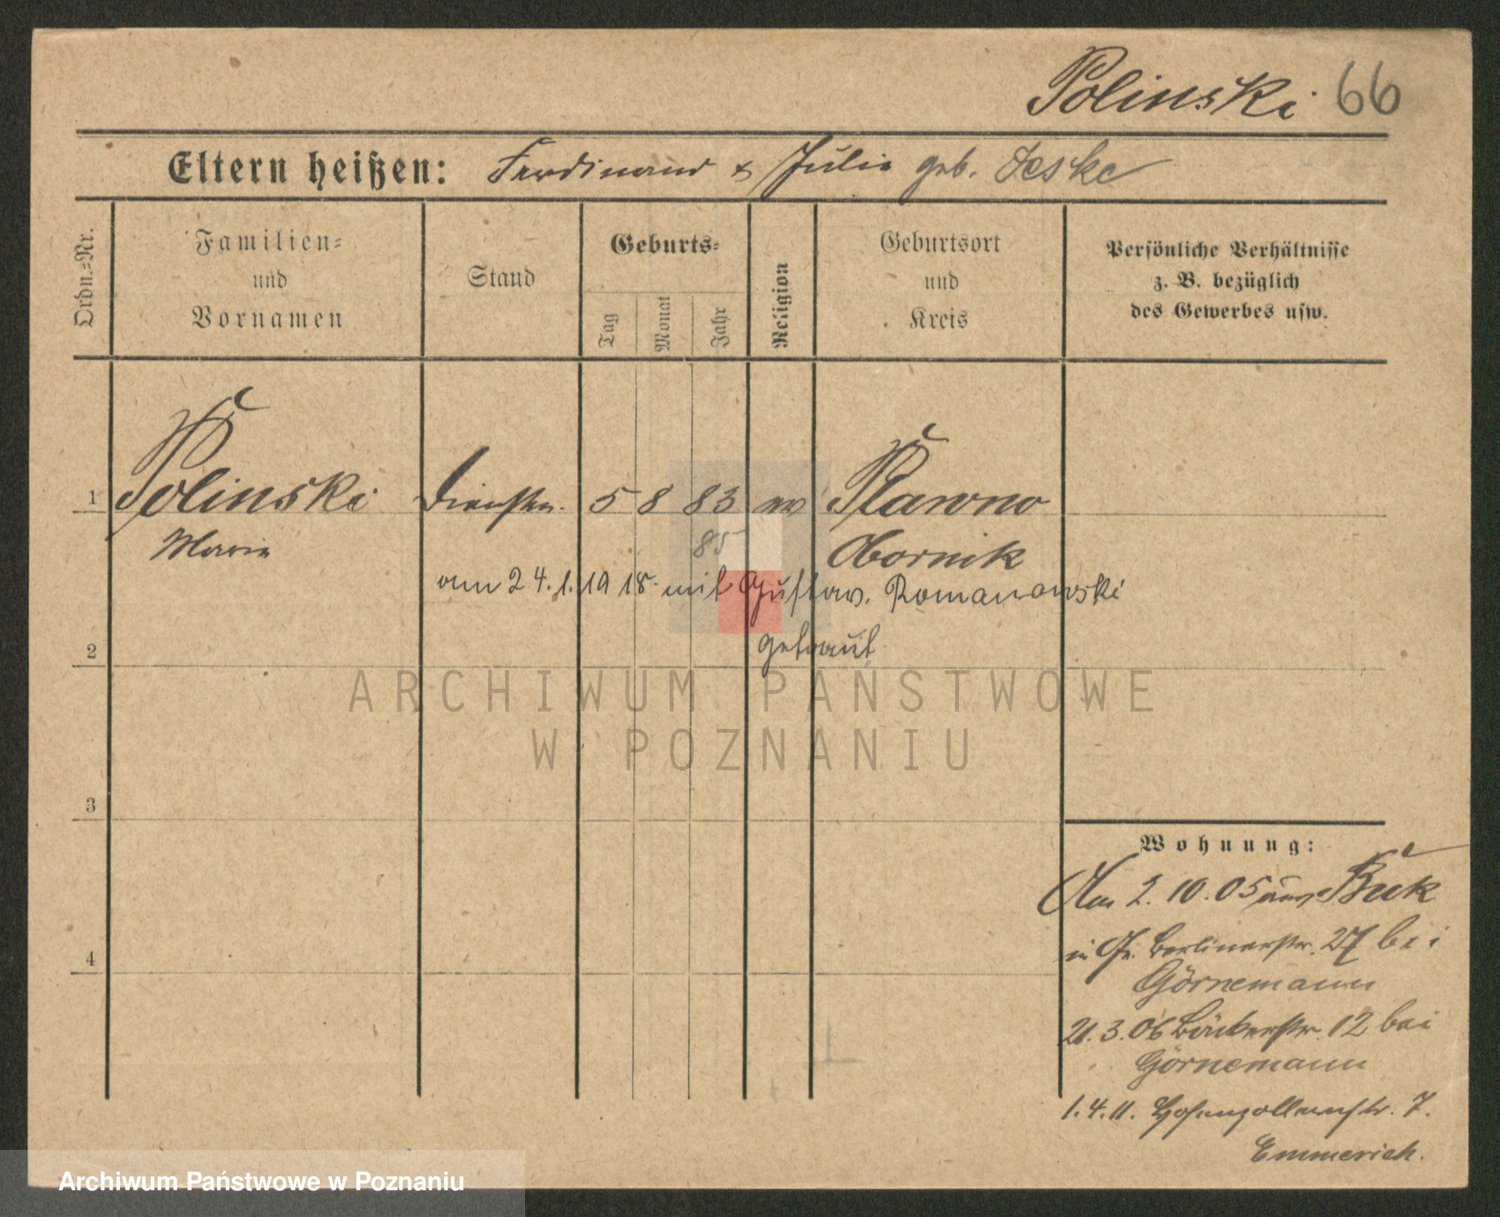 Polinski 66
Eltern heißen: Ferdinand & Julie geb. Jeske
Ordn.=Nr.
Familien=
und
Vornamen
Stand
Geburts=
Tag
Monat
Jahr
Religion
Geburtsort
und
Kreis
Persönliche Verhältnisse
z. B. bezüglich
des Gewerbes usw.
1 Polinski Dienstm. 5 8 83 ev Rawno
Marie 85 Obornik
am 24.1.1918 mit Gustav. Romanowski
getraut
2
3
4
Wohnung:
Am 2.10.05 aus Buk
in Berlinerstr. 27 bei
Görnemann
21.3.06 Bäckerstr. 12 bei
Görnemann
1.4.11. Hohenzollernstr. 7.
Emmerich.
ARCHIWUM PAŃSTWOWE
W POZNANIU
Archiwum Państwowe w Poznaniu